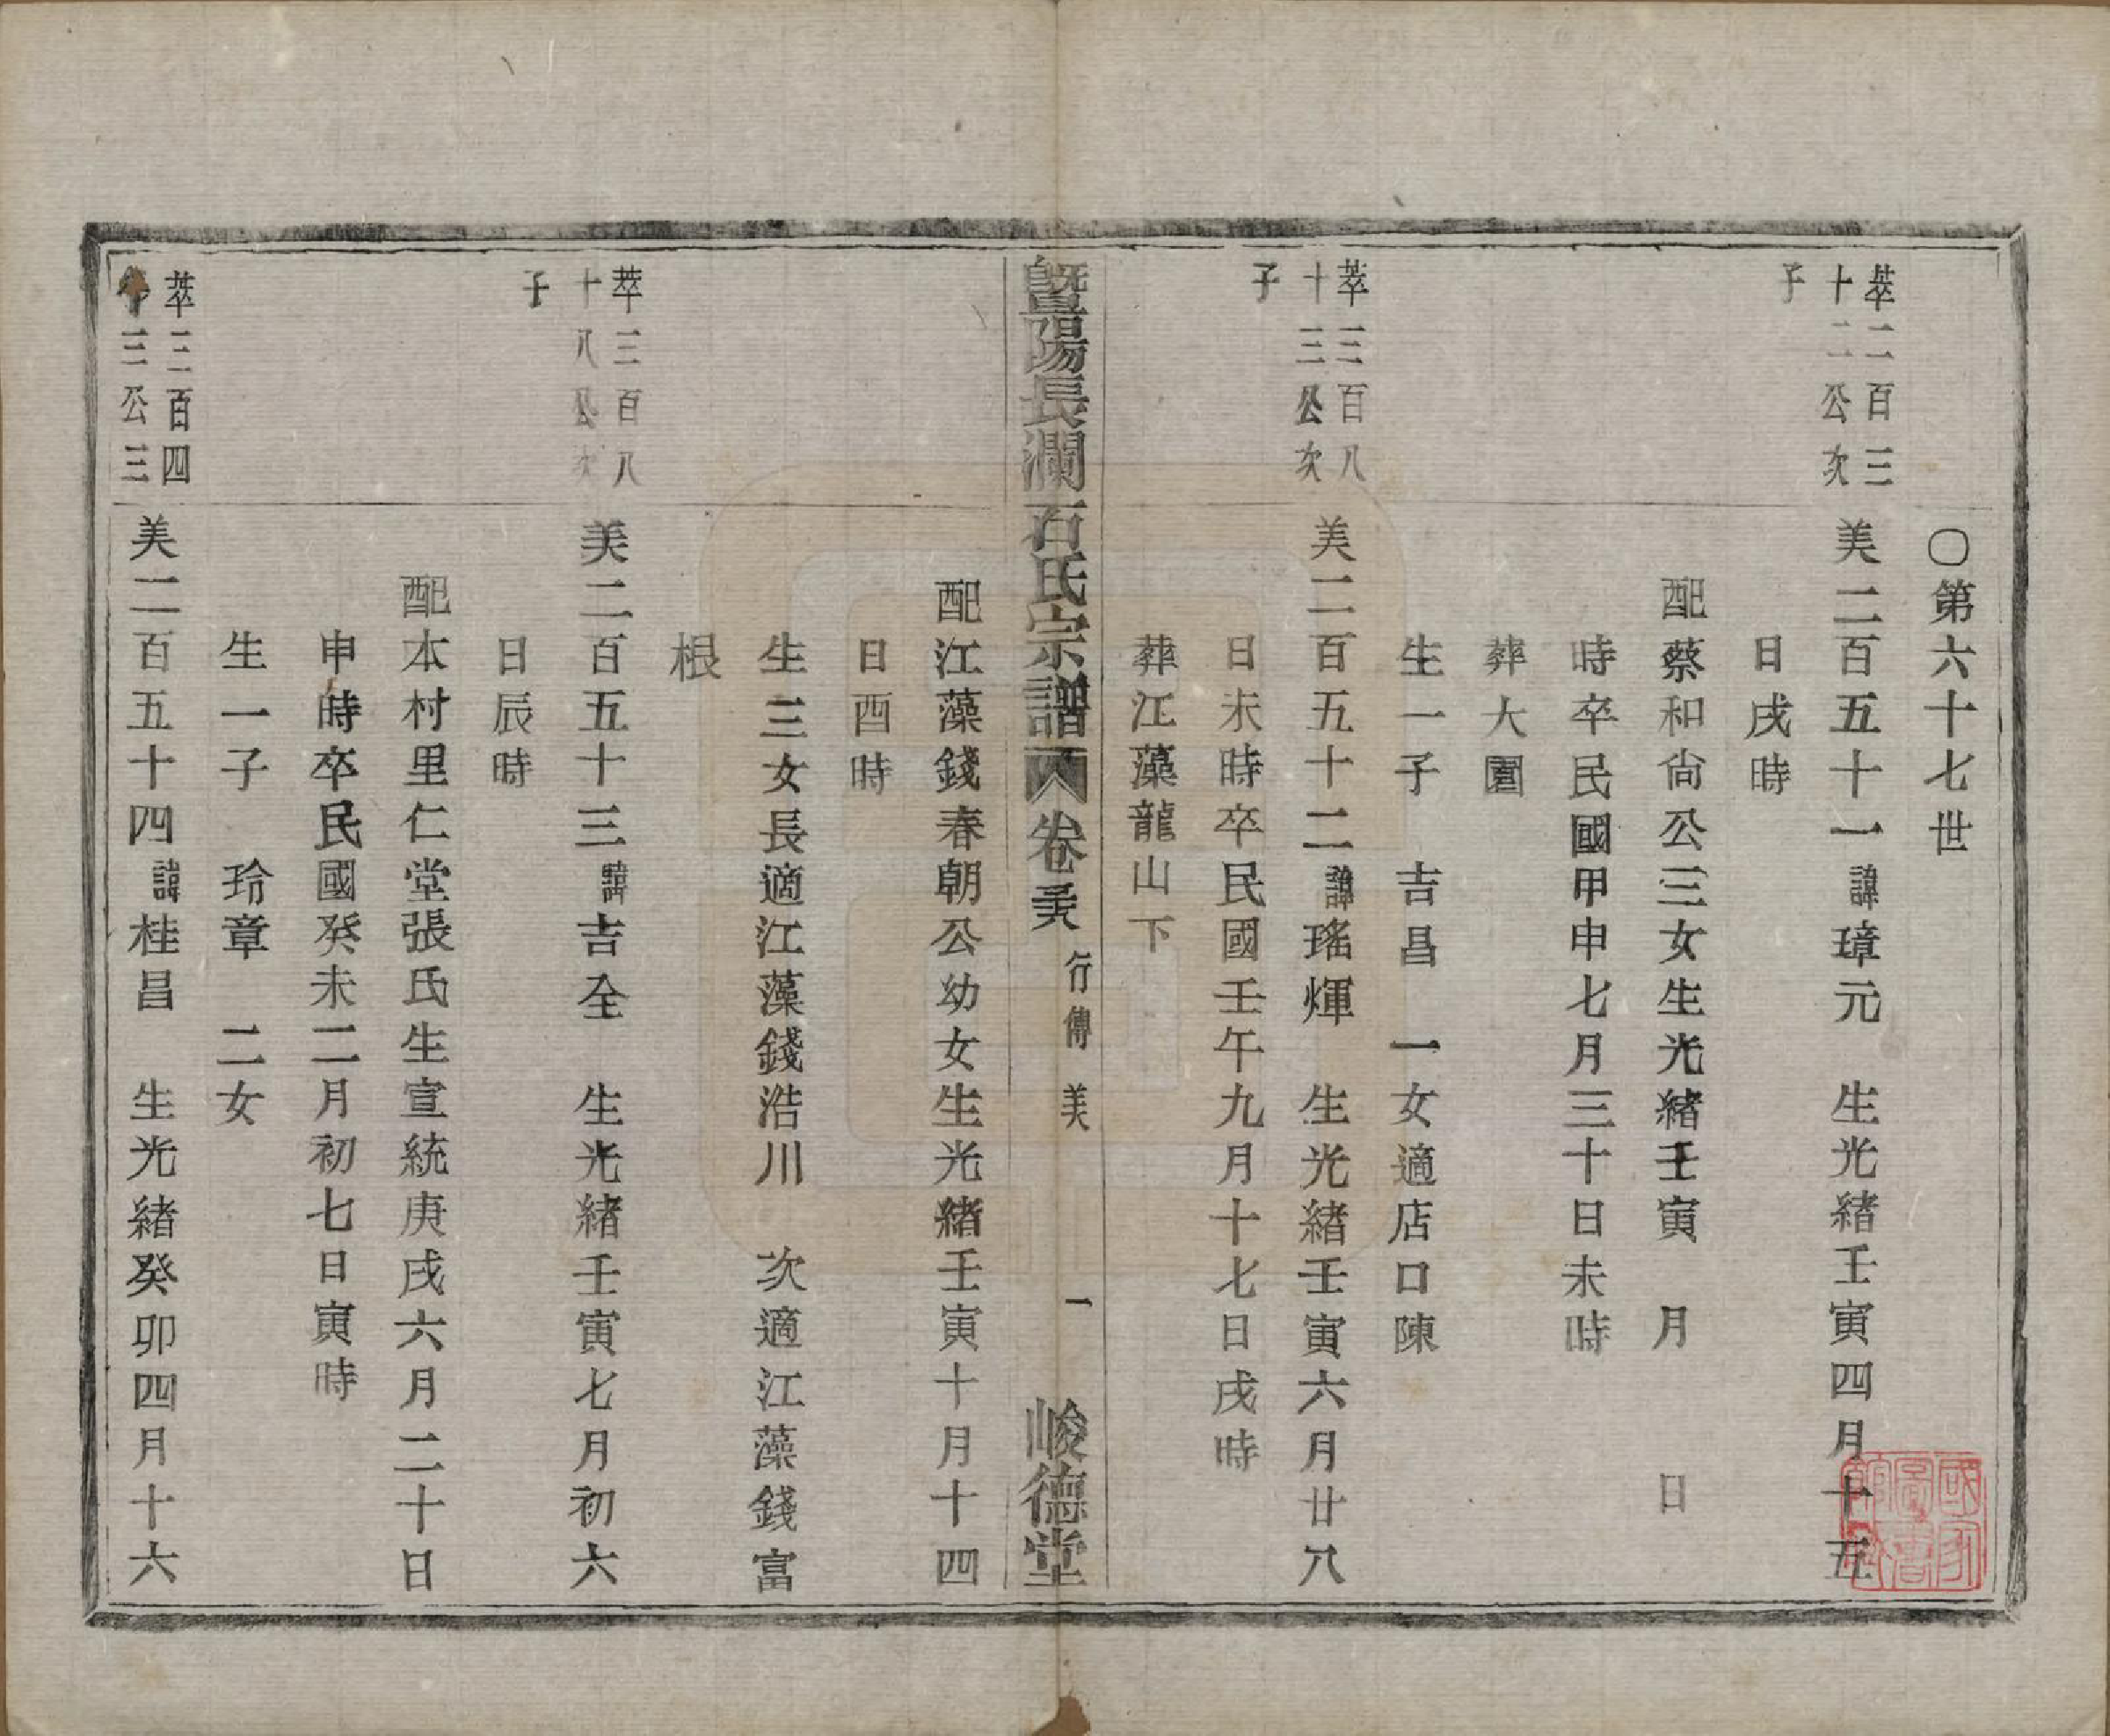 〇第六十七世
萃二百三
十二公次
子
美二百五十一諱璋元　生光緒壬寅四月十五
日戌時
配蔡和尙公三女生光緒壬寅　月　　日
時卒民國甲申七月三十日未時
葬大園
生一子　吉昌　一女適店口陳
萃三百八
十三公次
子
美二百五十二諱瑤煇　生光緒壬寅六月廿八
日未時卒民國壬午九月十七日戌時
葬江藻龍山下
暨陽長瀾石氏宗譜　卷　行傳　美　一　峻德堂
配江藻錢春朝公幼女生光緒壬寅十月十四
日酉時
生三女長適江藻錢浩川　次適江藻錢富
根
萃三百八
十八公次
子
美二百五十三諱吉全　生光緒壬寅七月初六
日辰時
配本村里仁堂張氏生宣統庚戌六月二十日
申時卒民國癸未二月初七日寅時
生一子　玲章　二女
萃三百四
三公三
美二百五十四諱桂昌　生光緒癸卯四月十六